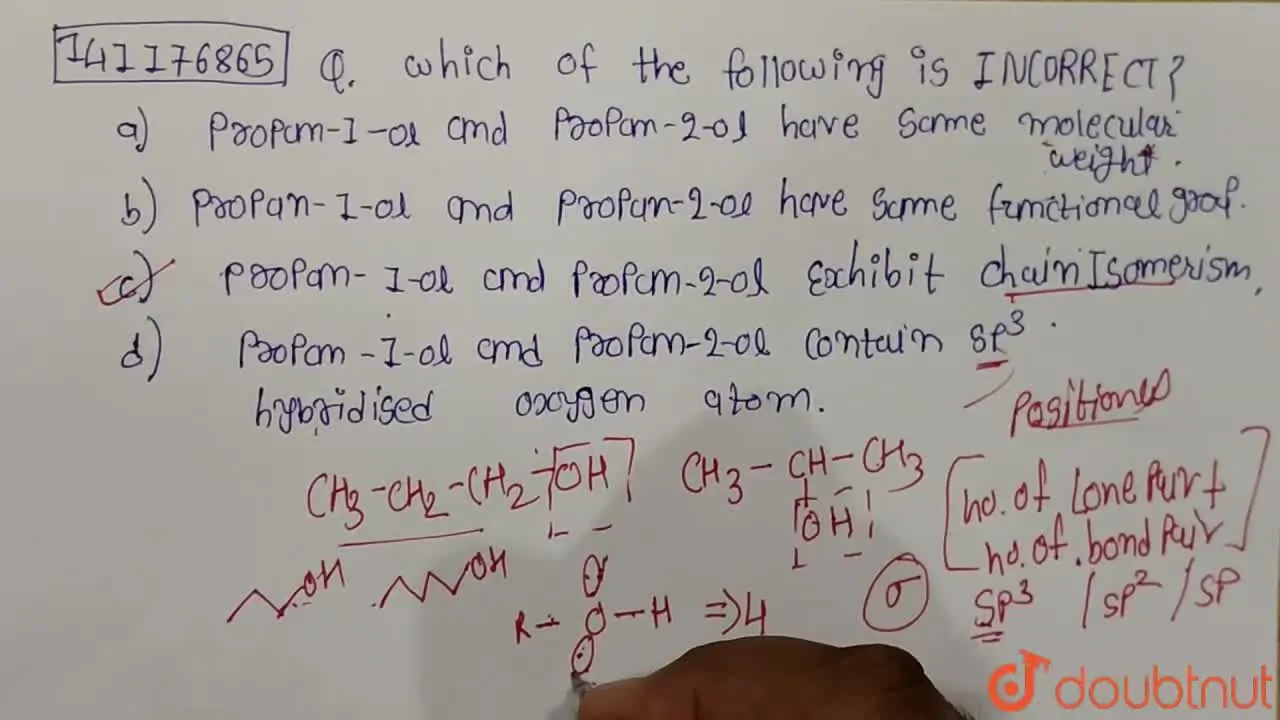 141176865 Q. Which of the following is INCORRECT?
a) Propan-1-ol and Propan-2-ol have Same molecular
weight.
b) Propan-1-ol and Propan-2-ol have Same functional group.
(c) Propan-1-ol and Propan-2-ol Exhibit chain Isomerism,
d) Propan-1-ol and Propan-2-ol contain SP³
hybridised oxygen atom.
Positiones
CH3-CH2-CH2-OH CH3-CH-CH3
OH
no. of Lone Pair +
no. of bond Pair
OH OH
R-O-H => 4 σ SP³ / SP² / SP
doubtnut